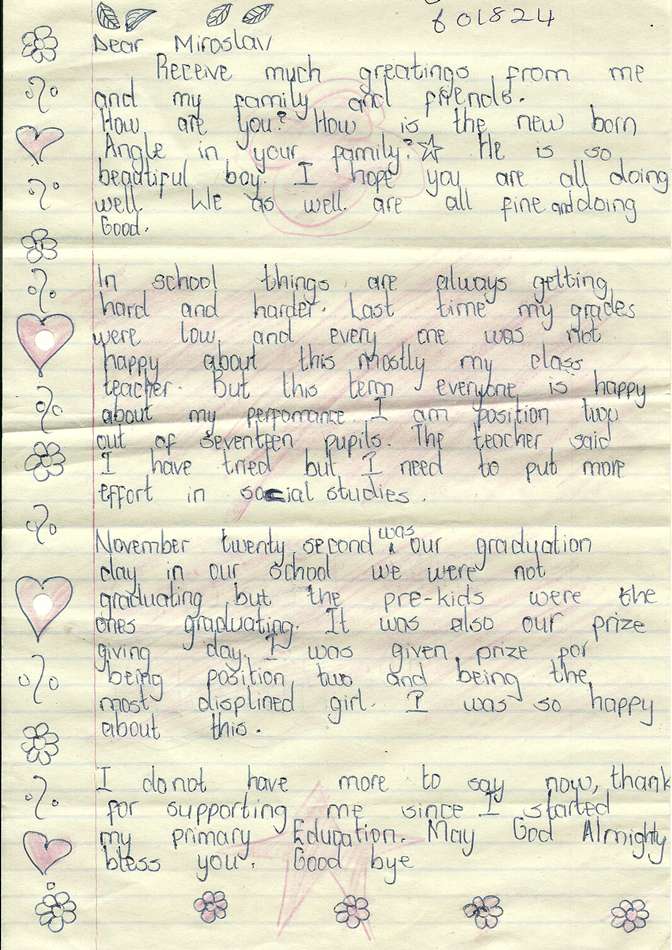 601824
Dear Miroslav
Receive much greatings from me
and my family and friends.
How are you? How is the new born
Angle in your family? He is so
beautiful boy. I hope you are all doing
well. We as well are all fine and doing
Good.
In school things are always getting
hard and harder. Last time my grades
were low and every one was not
happy about this mostly my class
teacher. But this term everyone is happy
about my perfomance. I am position two
out of seventeen pupils. The teacher said
I have tried but I need to put more
effort in social studies.
November twenty second was our graduation
day in our school we were not
graduating but the pre-kids were the
ones graduating. It was also our prize
giving day. I was given prize for
being position two and being the
most displined girl. I was so happy
about this.
I do not have more to say now, thank
for supporting me since I started
my primary Education. May God Almighty
bless you. Good bye